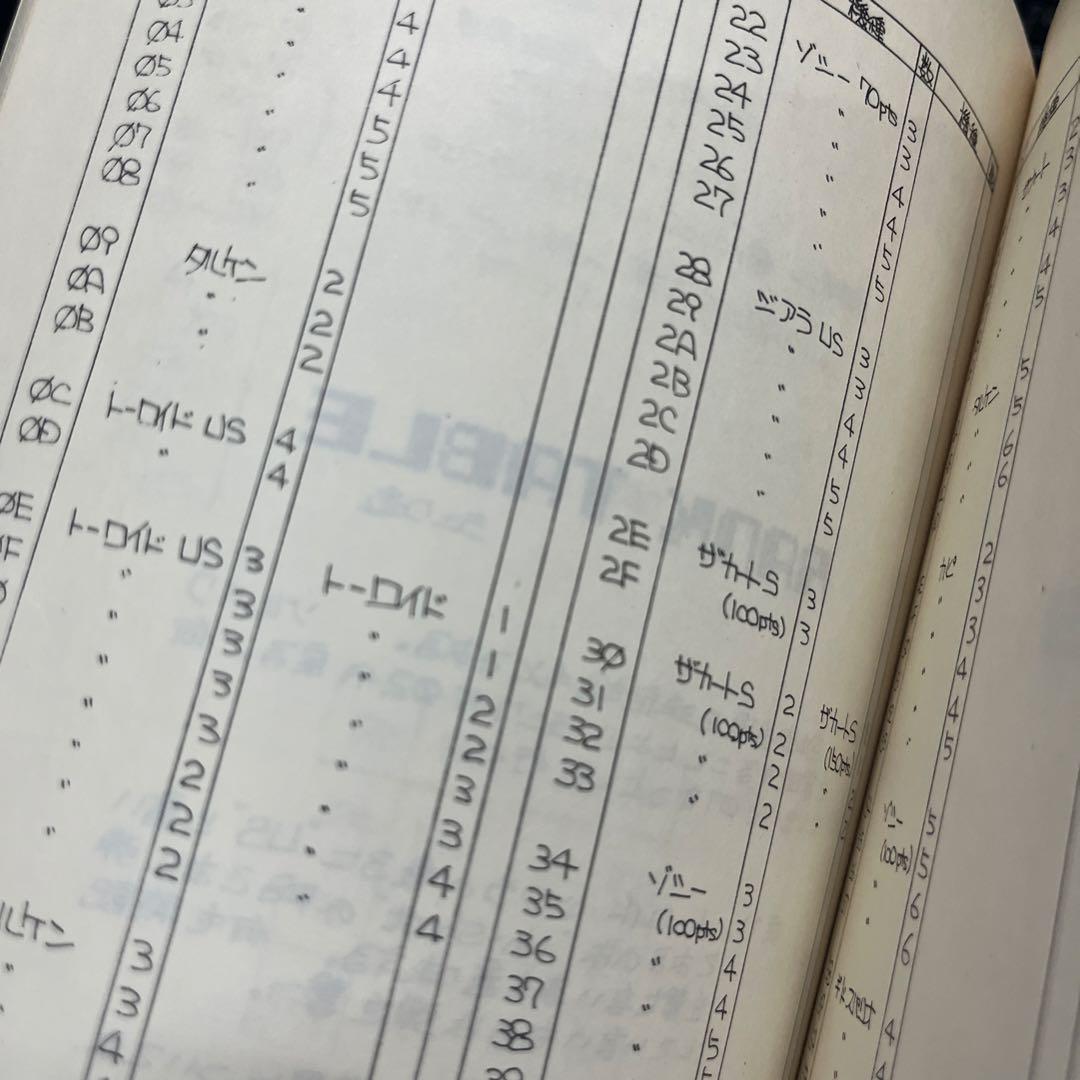 04 〃 4
05 〃 4
06 〃 4
07 〃 5
08 〃 5
5
09 タルケン 2
0A 〃 2
0B 〃 2
0C トーロイド US 4
0D 〃 4
0E トーロイド US 3 トーロイド 1
〃 3 〃 1
〃 3 〃 2
〃 3 〃 2
〃 3 〃 3
〃 2 〃 3
〃 2 〃 4
2 4
ルケン 3
〃 3
4
機種 数 機種
22 ゾニー 70pts 3
23 〃 3
24 〃 4
25 〃 4
26 〃 5
27 5
28 ジアラ US 3
29 〃 3
2A 〃 4
2B 〃 4
2C 〃 5
2D 〃 5
2E ザカートS 3
2F (100pts) 3
30 ザカートS 2 ザカートS
31 (100pts) 2 (150pts)
32 〃 2 〃
33 〃 2 〃
34 ゾニー 3
35 (100pts) 3
36 〃 4
37 〃 4
38 〃 5
ザカート 3
〃 3
〃 4
〃 4
〃 5
タルケン 5
〃 5
〃 6
〃 6
2
3
3
4
4
5
ゾニー 5
(100pts) 5
〃 6
〃 6
4